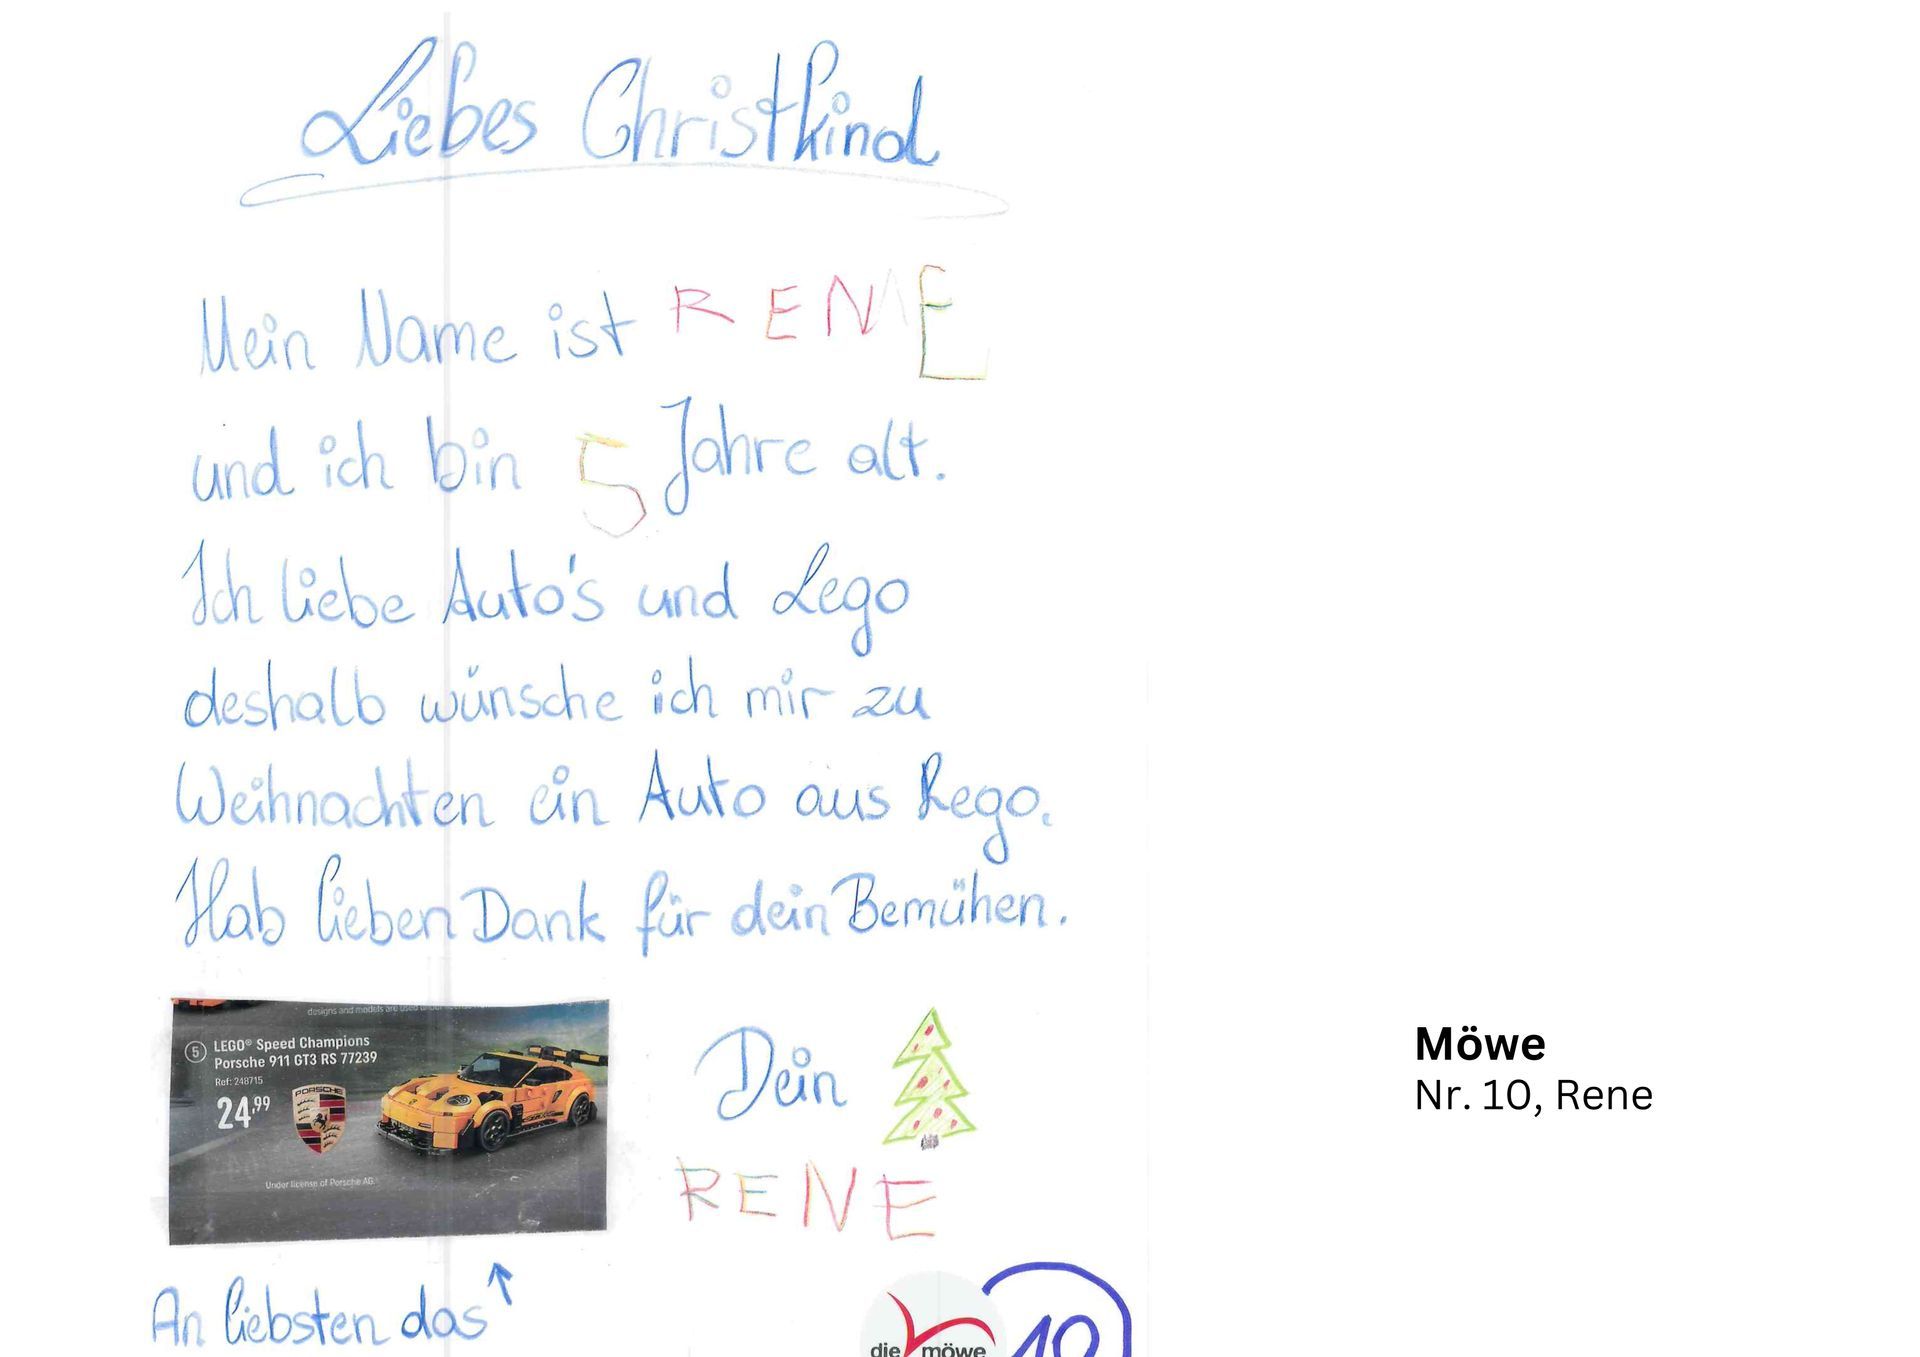 Liebes Christkind
Mein Name ist RENE
und ich bin 5 Jahre alt.
Ich liebe Auto's und Lego
deshalb wünsche ich mir zu
Weihnachten ein Auto aus Lego.
Hab lieben Dank für dein Bemühen.
designs and models are used under
5 LEGO® Speed Champions
Porsche 911 GT3 RS 77239
Ref: 248715
24,99
PORSCHE
Under license of Porsche AG.
An liebsten das ↑
Dein
RENE
die möwe
10
Möwe
Nr. 10, Rene